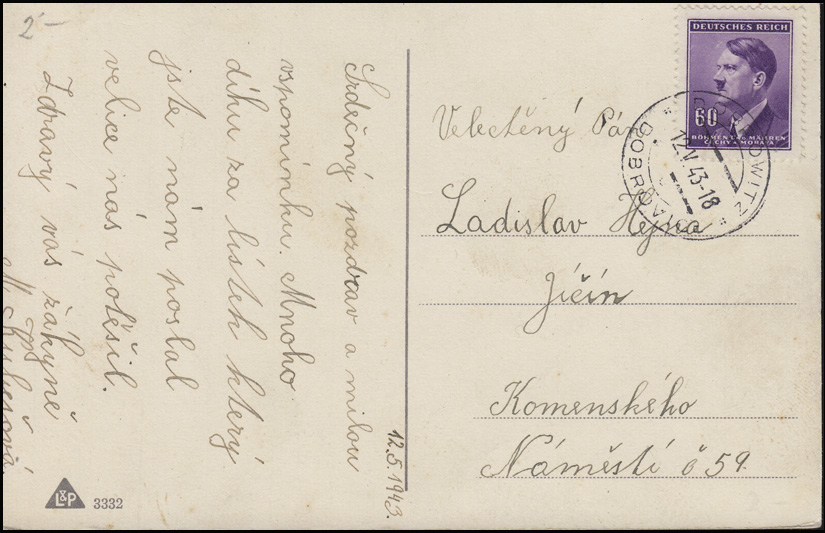 2-
Srdečný pozdrav a milou
vzpomínku. Mnoho
díku za lístek který
jste nám poslal
velice nás potěšil.
Zdravý vás žákyně
M.
12.5.1943.
L&P 3332
DEUTSCHES REICH
60
BÖHMEN u. MÄHREN
ČECHY a MORAVA
DOBROWITZ
DOBROVICE
12.V.43-18
Velectěný Pán
Ladislav Hejna
Jičín
Komenského
Náměstí č 59.